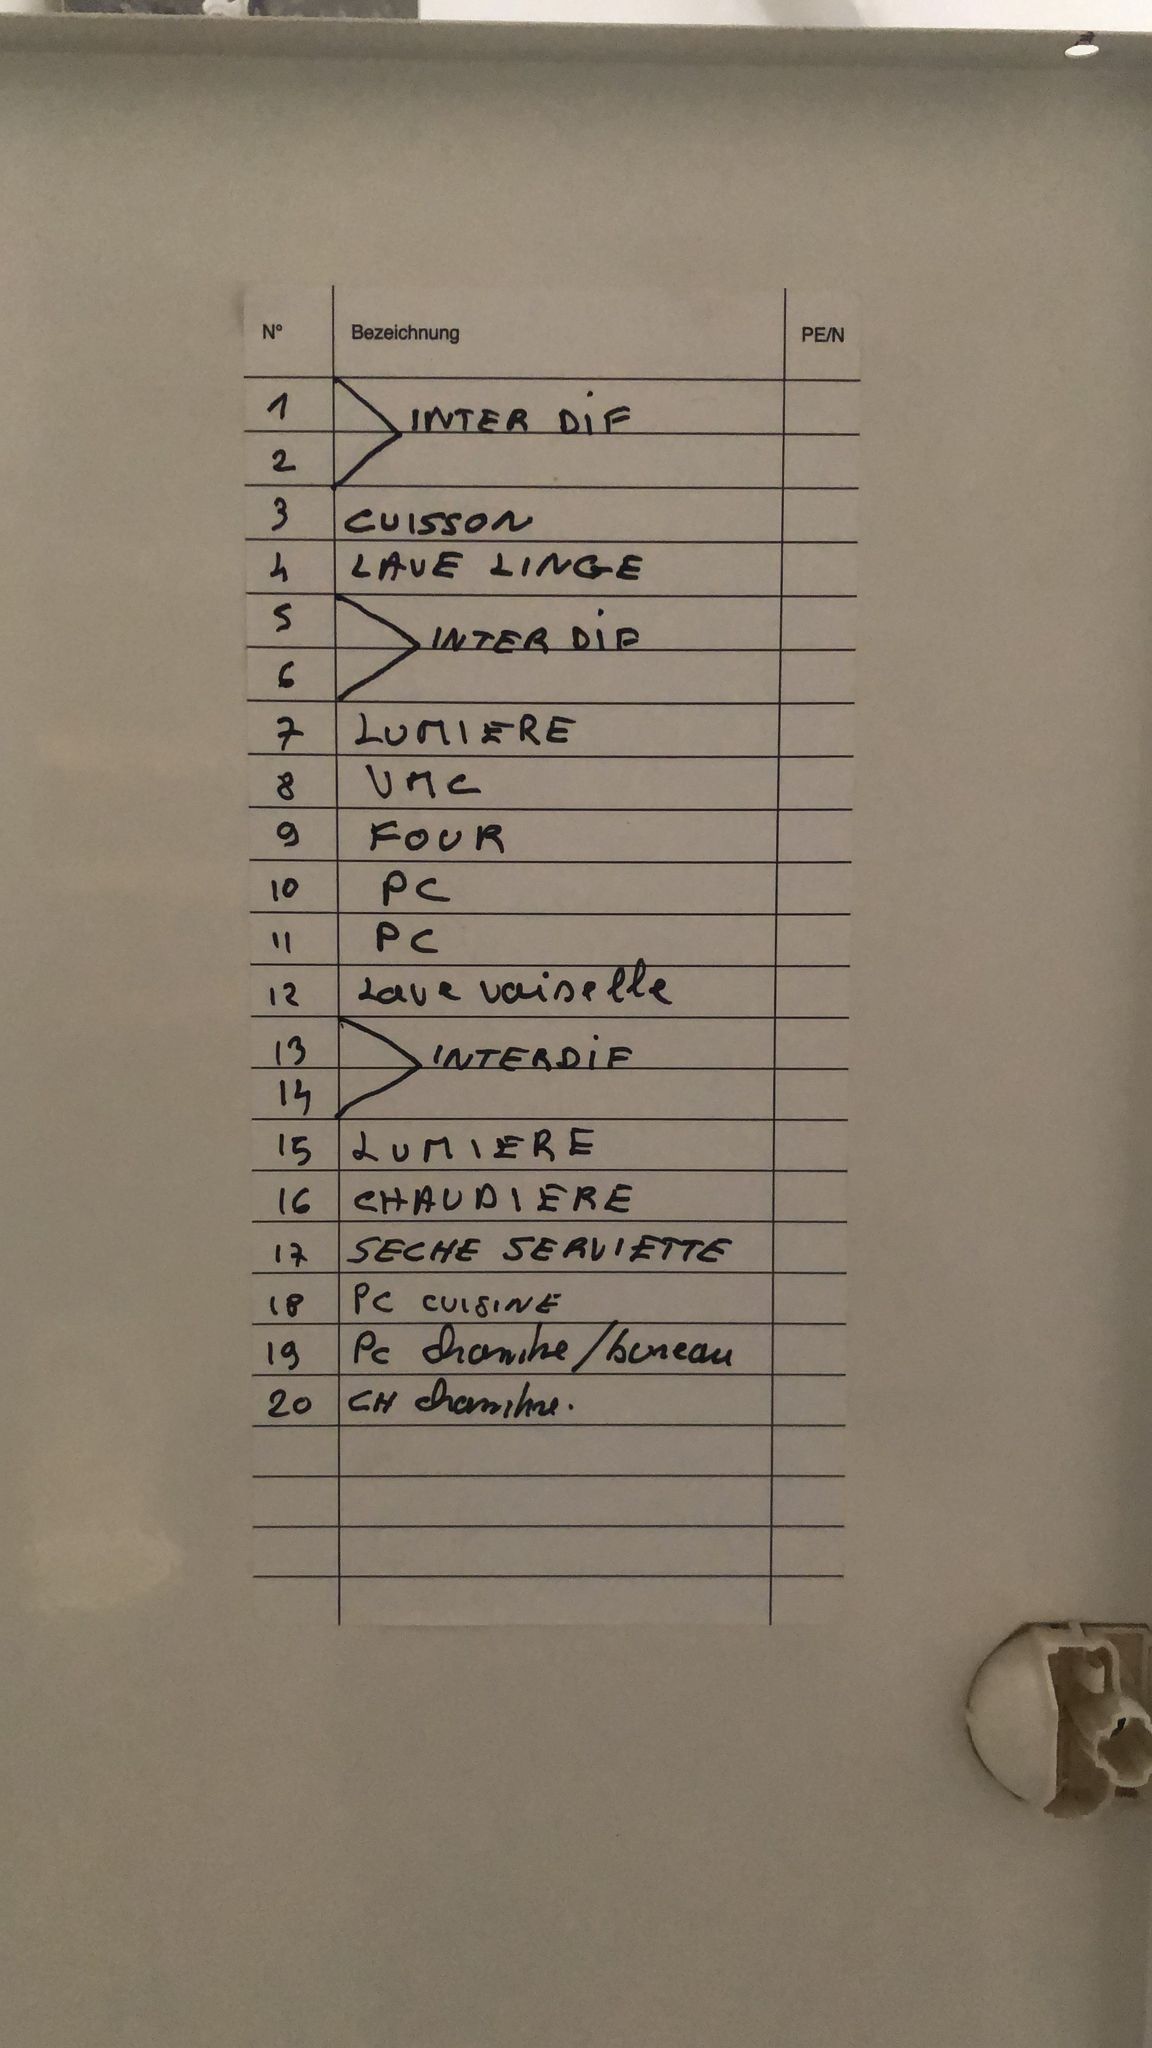 N° Bezeichnung PE/N
1 INTER DiF
2
3 CUISSON
4 LAVE LINGE
5 INTER DiF
6
7 LUMIERE
8 VMC
9 FOUR
10 PC
11 PC
12 Lave vaiselle
13 INTERDiF
14
15 LUMIERE
16 CHAUDIERE
17 SECHE SERVIETTE
18 PC CUISINE
19 Pc chambre/bureau
20 CH chambre.